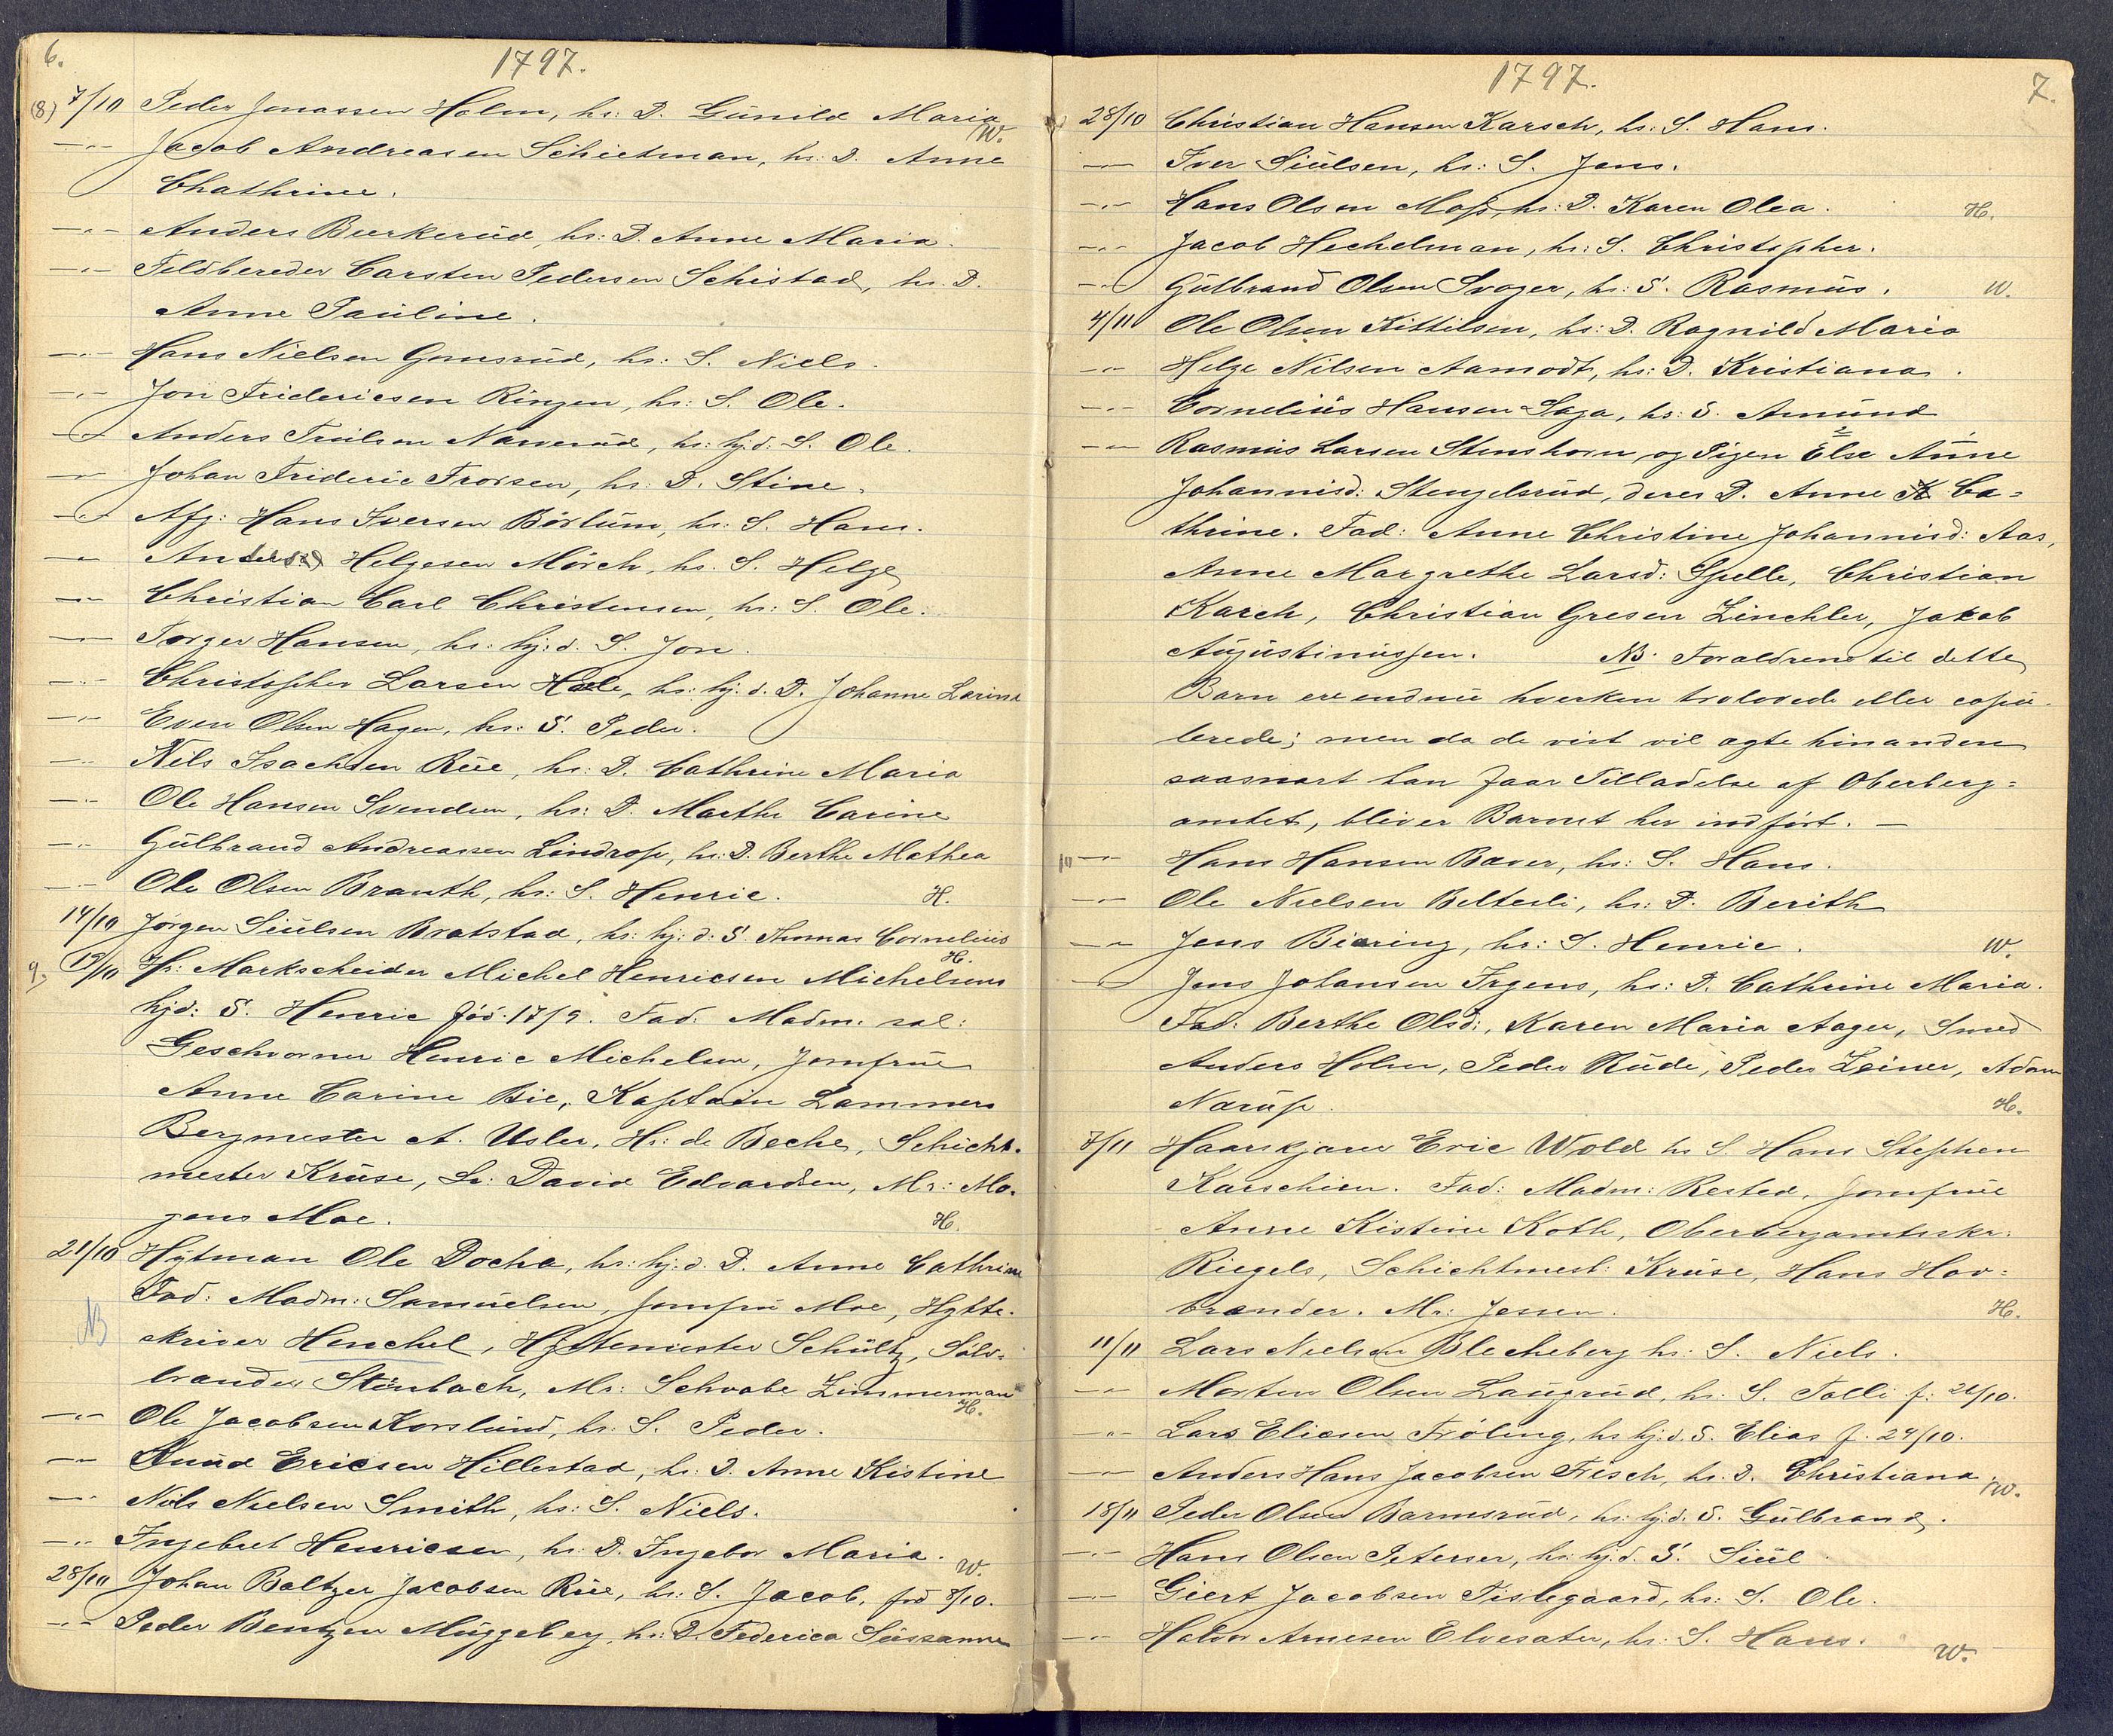 6.
1797.
(8) 7/10 Peder Jonassen Holm, hs: D. Gunild Maria
W.
-"- Jacob Andreasen Schietman, hs: D. Anne
Chathrine.
-"- Anders Burkerud, hs: D. Anne Maria.
-"- Feldbereder Carsten Pedersen Schistad, hs. D.
Anne Pauline.
-"- Hans Nielsen Gomsrud, hs: S. Niels.
-"- Jon Fridericsen Ringen, hs: S. Ole.
-"- Anders Truilsen Narverud, hs: hj.d. S. Ole.
-"- Johan Frideric Frorsen, hs: D. Stine.
-"- Afg: Hans Iversen Börtum, hs: S. Hans.
-"- Anders Helgesen Mörch, hs. S. Helge
-"- Christian Carl Christensen, hs: S. Ole.
-"- Torger Hansen, hs: hj:d. S. Jon.
-"- Christopher Larsen Hæle, hs: hj. d. D. Johanne Larine
-"- Even Olsen Hagen, hs: S. Peder.
-"- Nils Isachsen Rue, hs: D. Cathrine Maria
-"- Ole Hansen Svendsen, hs: D. Marthe Carine
-"- Gulbrand Andreassen Lindrop, hs: D. Berthe Mathea
-"- Ole Olsen Branth, hs: S. Henric. H.
14/10 Jörgen Siulsen Bratstad, hs: hj: d: S. Thomas Cornelius
H.
9. 19/10 Hr: Markscheider Michel Henricsen Michelsens
hjd: S. Henric föd: 17/9. Fad. Madm. sal:
Geschworner Henric Michelsen, Jomfrue
Anne Carine Bie, Kaptain Lammers
Bergmester A. Usler, Hr: de Beche, Schicht-
mester Kruse, Sr: David Edvardsen, Mr: Mo-
gens Moe. H.
21/10 Hytman Ole Docka, hs: hj: d. D. Anne Cathrine
Fad: Madm: Samuelsen, Jomfru Moe, Hytte-
NB skriver Henchel, Hyttemester Schultz, Sölv-
brander Steinbach, Mr: Schwabe Zimmerman
H.
-"- Ole Jacobsen Korslund, hs: S. Peder.
-"- Knud Ericsen Hillestad, hs: D. Anne Kistine
-"- Nils Nielsen Smith, hs: S. Niels.
-"- Ingebret Henricsen, hs: D. Ingebor Maria.
W.
28/10 Johan Baltzer Jacobsen Rue, hs: S. Jacob, fød 8/10.
-"- Peder Bentzen Muggeberg, hs: D. Federica Sussanne
1797.
7.
28/10 Christian Hansen Karsch, hs: S. Hans.
-"- Iver Siulsen, hs: S. Jens.
-"- Hans Olsen Moss, hs: D. Karen Olea. H.
-"- Jacob Hechelman, hs: S. Christopher.
-"- Gulbrand Olsen Svager, hs: S. Rasmus. W.
4/11 Ole Olsen Kittilsen, hs: D. Ragnild Maria
-"- Helge Nilsen Aamodt, hs: D. Kristiana.
-"- Cornelius Hansen Saga, hs: S. Amund
-"- Rasmus Larsen Stenshorn, og Pigen Else Anne
Johannisd: Stengelsrud, deres D. Anne Ca=
thrine. Fad: Anne Christine Johannisd: Aas,
Anne Margrethe Larsd: Spelle, Christian
Karch, Christian Gresen Zinchler, Jakob
Augustinussen. NB. Foraldrene til dette
Barn ere endnu hverken trolovede eller copu-
lerede; men da de vist vil ægte hinanden
saasnart han faar Tilladelse af Oberberg=
amtet, bliver Barnet her indført. —
10 -"- Hans Hansen Baver, hs: S. Hans.
-"- Ole Nielsen Belterli, hs: D. Berith
-"- Jens Biering, hs: S. Henric. W.
-"- Jens Johansen Irgens, hs: D. Cathrine Maria.
Fad: Berthe Olsd:, Karen Maria Aager, Smed
Anders Holm, Peder Rude, Peder Zeiner, Adam
Narup. H.
7/11 Haarskjærer Eric Wold hs S. Hans Stephen
Karschien. Fad: Madm: Rested, Jomfrue
Anne Kistine Koth, Oberbergamtsskr:
Riegels, Schichtmest: Kruse, Hans Hov=
brander. Mr: Jessen. H.
11/11 Lars Nielsen Blecheberg hs: S. Niels.
-"- Morten Olsen Laugrud, hs: S. Tolli f: 21/10.
-"- Lars Eliesen Fröling, hs hj.d. S. Elias f. 24/10.
-"- Anders Hans Jacobsen Frisch, hs. D. Christiana.
W.
18/11 Peder Olsen Barmsrud, hs: hj:d. S. Gulbrand.
-"- Hans Olsen Petersen, hs: hj.d. S. Siul
-"- Giert Jacobsen Tislegaard, hs: S. Ole.
-"- Halvor Arnesen Elvesater, hs: S. Hans.
W.